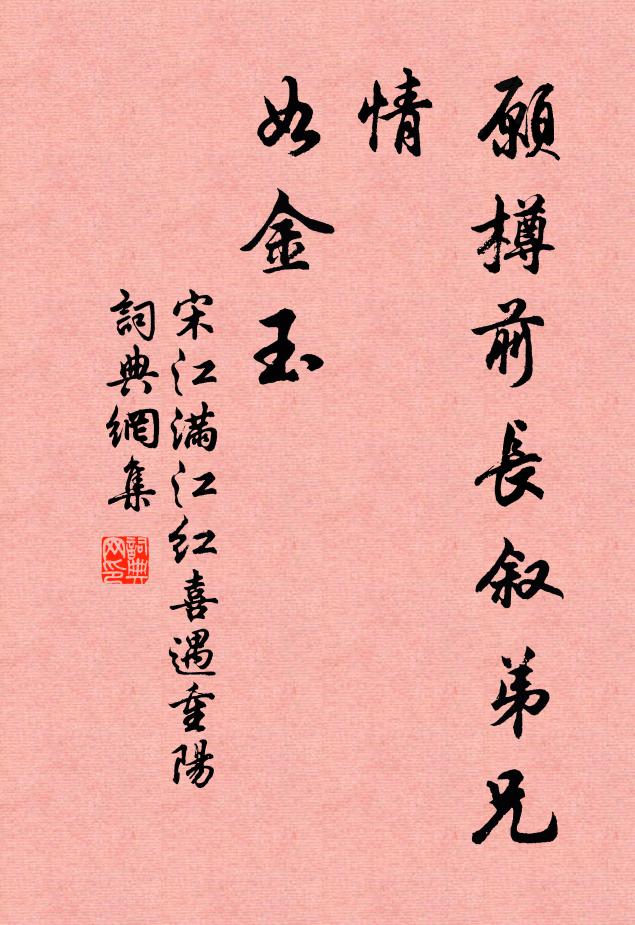 願樽前長叙弟兄
情
如金玉
宋江滿江红喜遇重陽
詞典網集
詞典
网印